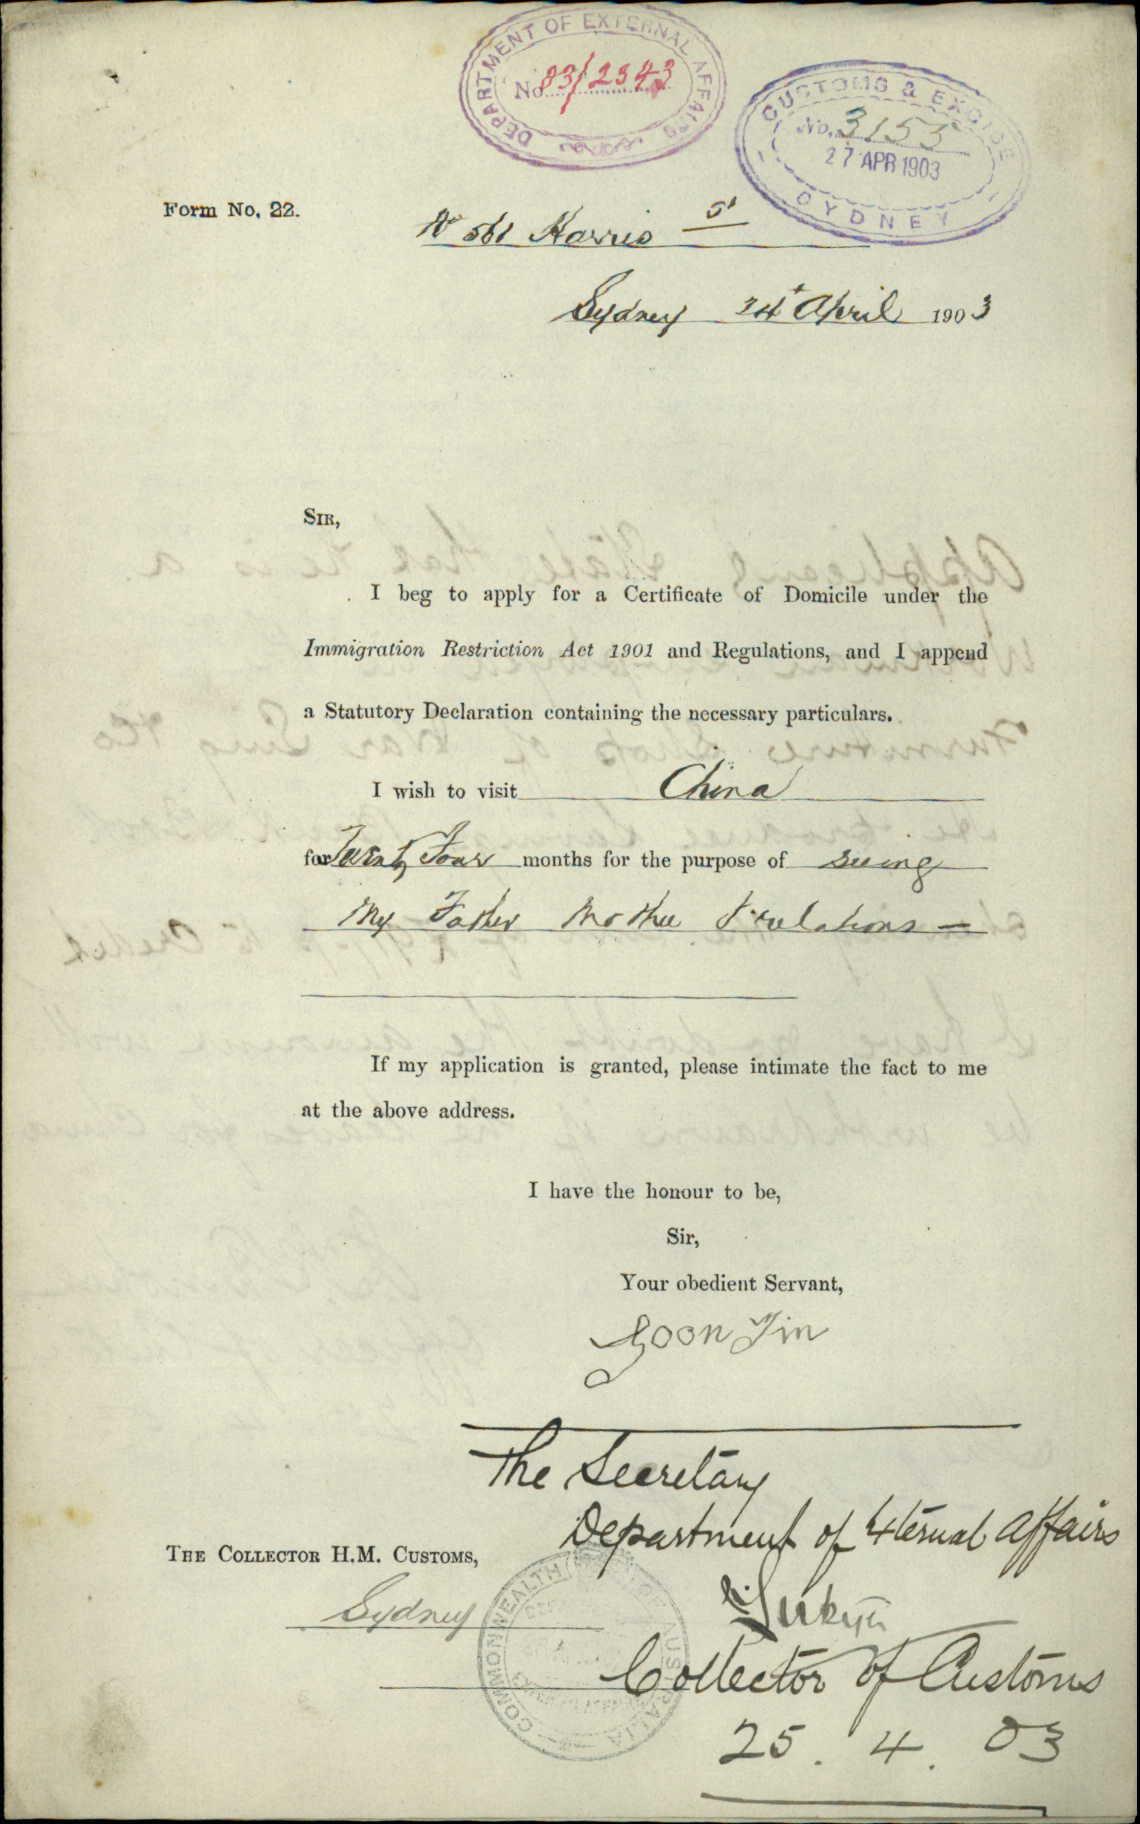 DEPARTMENT OF EXTERNAL AFFAIRS
No. 03/2343
CUSTOMS & EXCISE
No. 3155
27 APR 1903
SYDNEY
Form No. 22.
No 561 Harris St
Sydney 24th April 1903
SIR,
I beg to apply for a Certificate of Domicile under the
Immigration Restriction Act 1901 and Regulations, and I append
a Statutory Declaration containing the necessary particulars.
I wish to visit China
for Twenty Four months for the purpose of seeing
My Father Mother & relations —
If my application is granted, please intimate the fact to me
at the above address.
I have the honour to be,
Sir,
Your obedient Servant,
Goon Yin
The Secretary
Department of External Affairs
THE COLLECTOR H.M. CUSTOMS,
Sydney
COMMONWEALTH AUSTRALIA
Collector of Customs
25. 4. 03